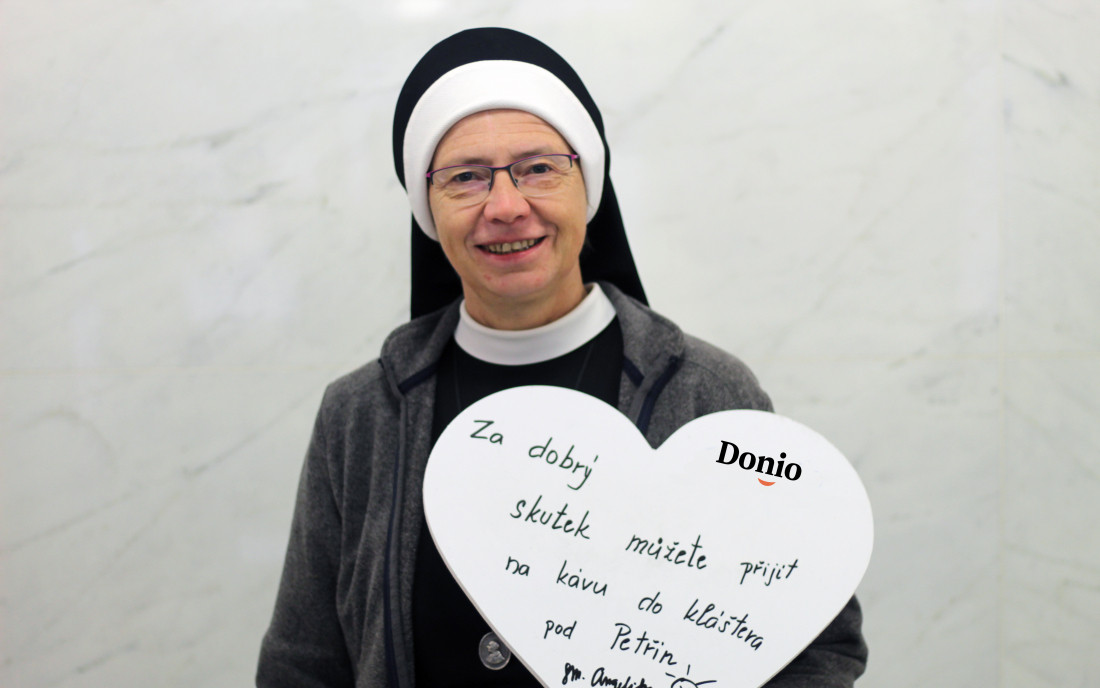 Donio
Za dobrý
skutek můžete přijít
na kávu do kláštera
pod Petřín!